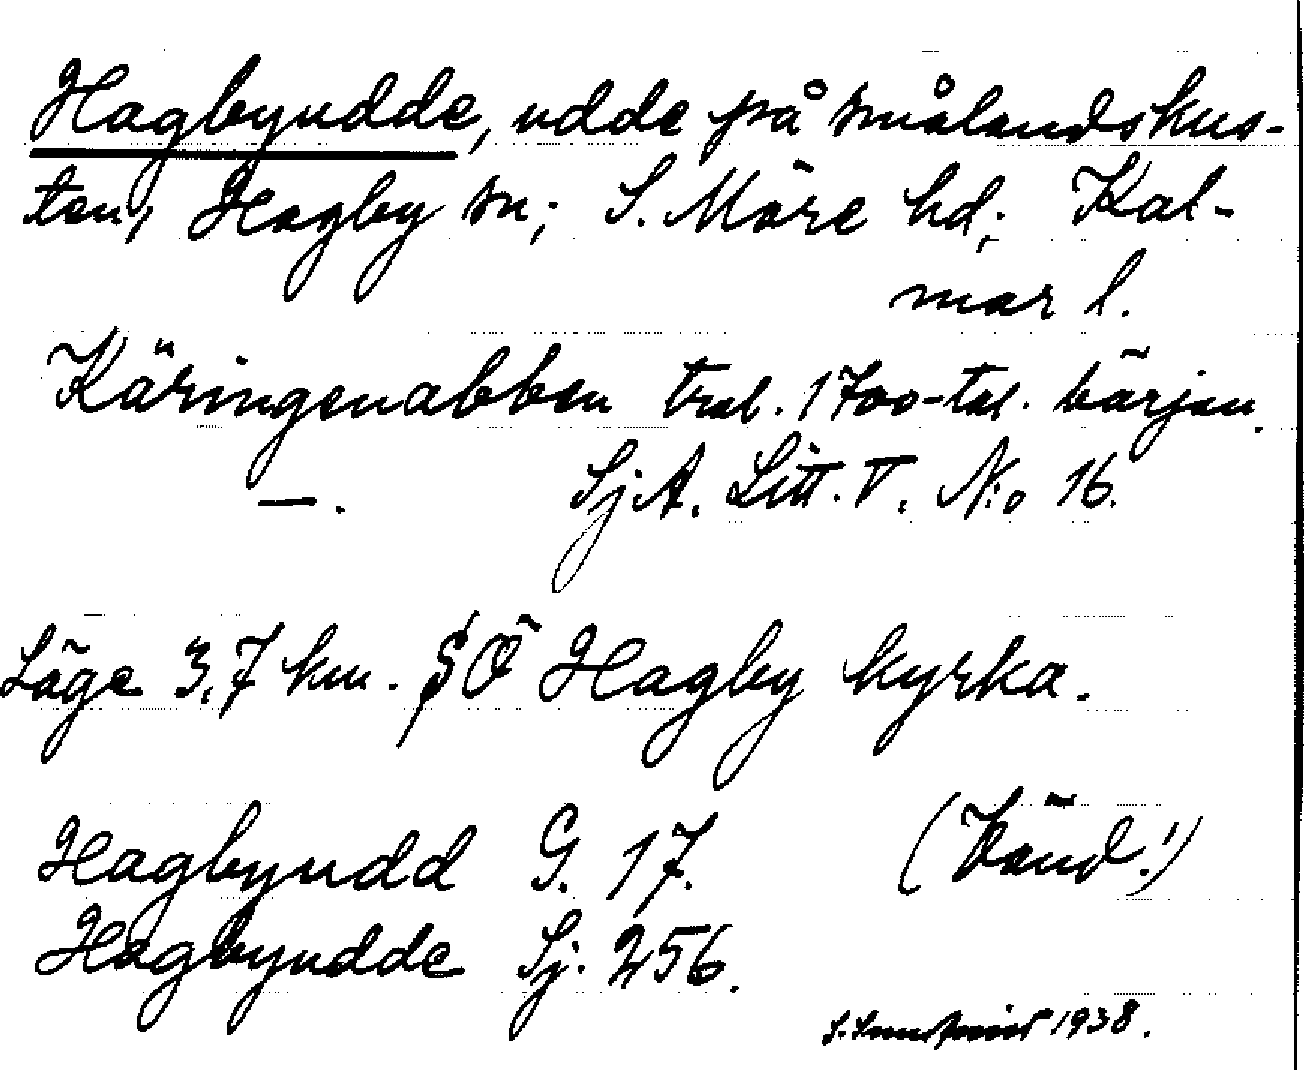 Hagbyudde, udde på smålandskus-
ten, Hagby sn; S. Möre hd; Kal-
mar l.
Käringenabben trol. 1700-tal. början.
—. SjA. Litt. T. N:o 16.
Läge 3,7 km. SÖ Hagby kyrka.
Hagbyudd G. 17. (Vänd!)
Hagbyudde Sj. 256.
1938.